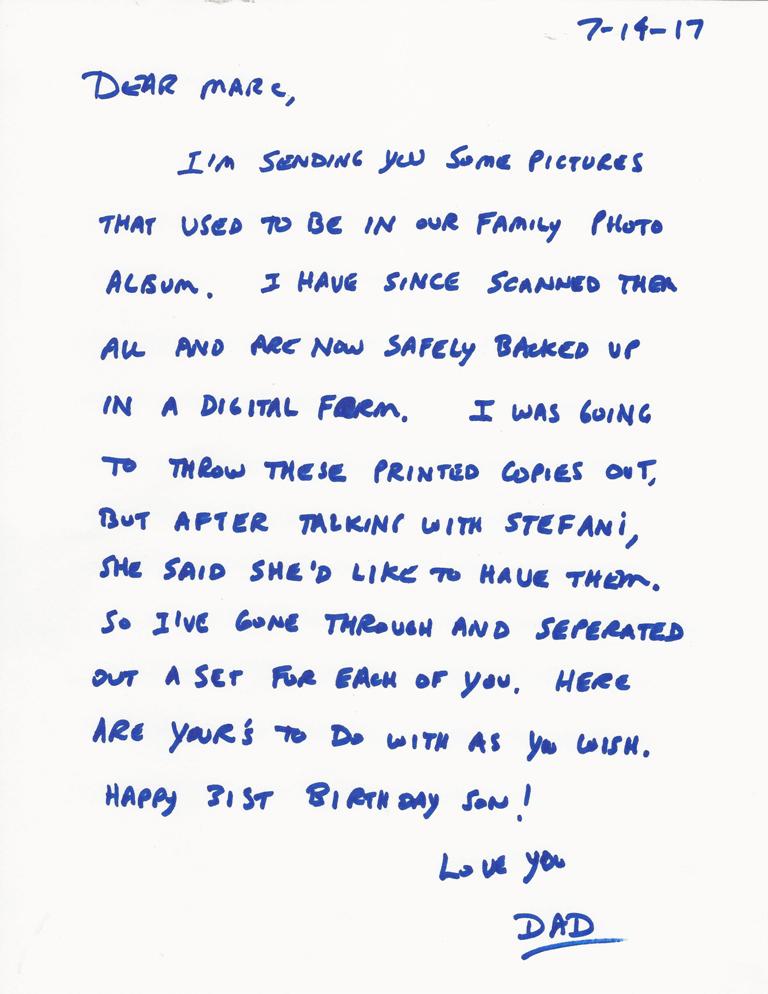 7-14-17
DEAR MARC,
I'M SENDING YOU SOME PICTURES
THAT USED TO BE IN OUR FAMILY PHOTO
ALBUM. I HAVE SINCE SCANNED THEM
ALL AND ARE NOW SAFELY BACKED UP
IN A DIGITAL FORM. I WAS GOING
TO THROW THESE PRINTED COPIES OUT,
BUT AFTER TALKING WITH STEFANi,
SHE SAID SHE'D LIKE TO HAVE THEM.
SO I'VE GONE THROUGH AND SEPERATED
OUT A SET FOR EACH OF YOU. HERE
ARE YOUR'S TO DO WITH AS YOU WISH.
HAPPY 31ST BIRTHDAY SON!
LOVE YOU
DAD